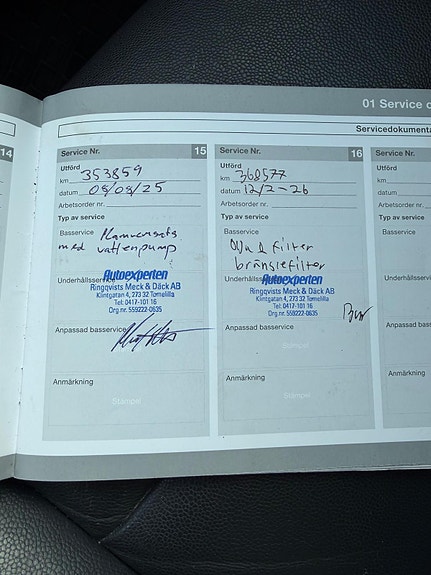 01 Service d
Servicedokumenta
14
Service Nr. 15
Utförd
km 353859
datum 08/08/25
Arbetsorder nr.
Typ av service
Basservice Kamremsats
med vattenpump
Underhållsservice
Autoexperten
Ringqvists Meck & Däck AB
Klintgatan 4, 273 32 Tomelilla
Tel: 0417-101 16
Org.nr. 559222-0635
Anpassad basservice
Anmärkning
Stämpel
Service Nr. 16
Utförd
km 368577
datum 12/2-26
Arbetsorder nr.
Typ av service
Basservice
Olja & filter
bränslefilter
Underhållsservice
Autoexperten
Ringqvists Meck & Däck AB
Klintgatan 4, 273 32 Tomelilla
Tel: 0417-101 16
Org.nr. 559222-0635
Anpassad basservice
Stämpel
Anmärkning
Stämpel
Service Nr.
Utförd
km
datum
Arbetsorder
Typ av service
Basservice
Underhållss
Anpassad b
Anmärkning